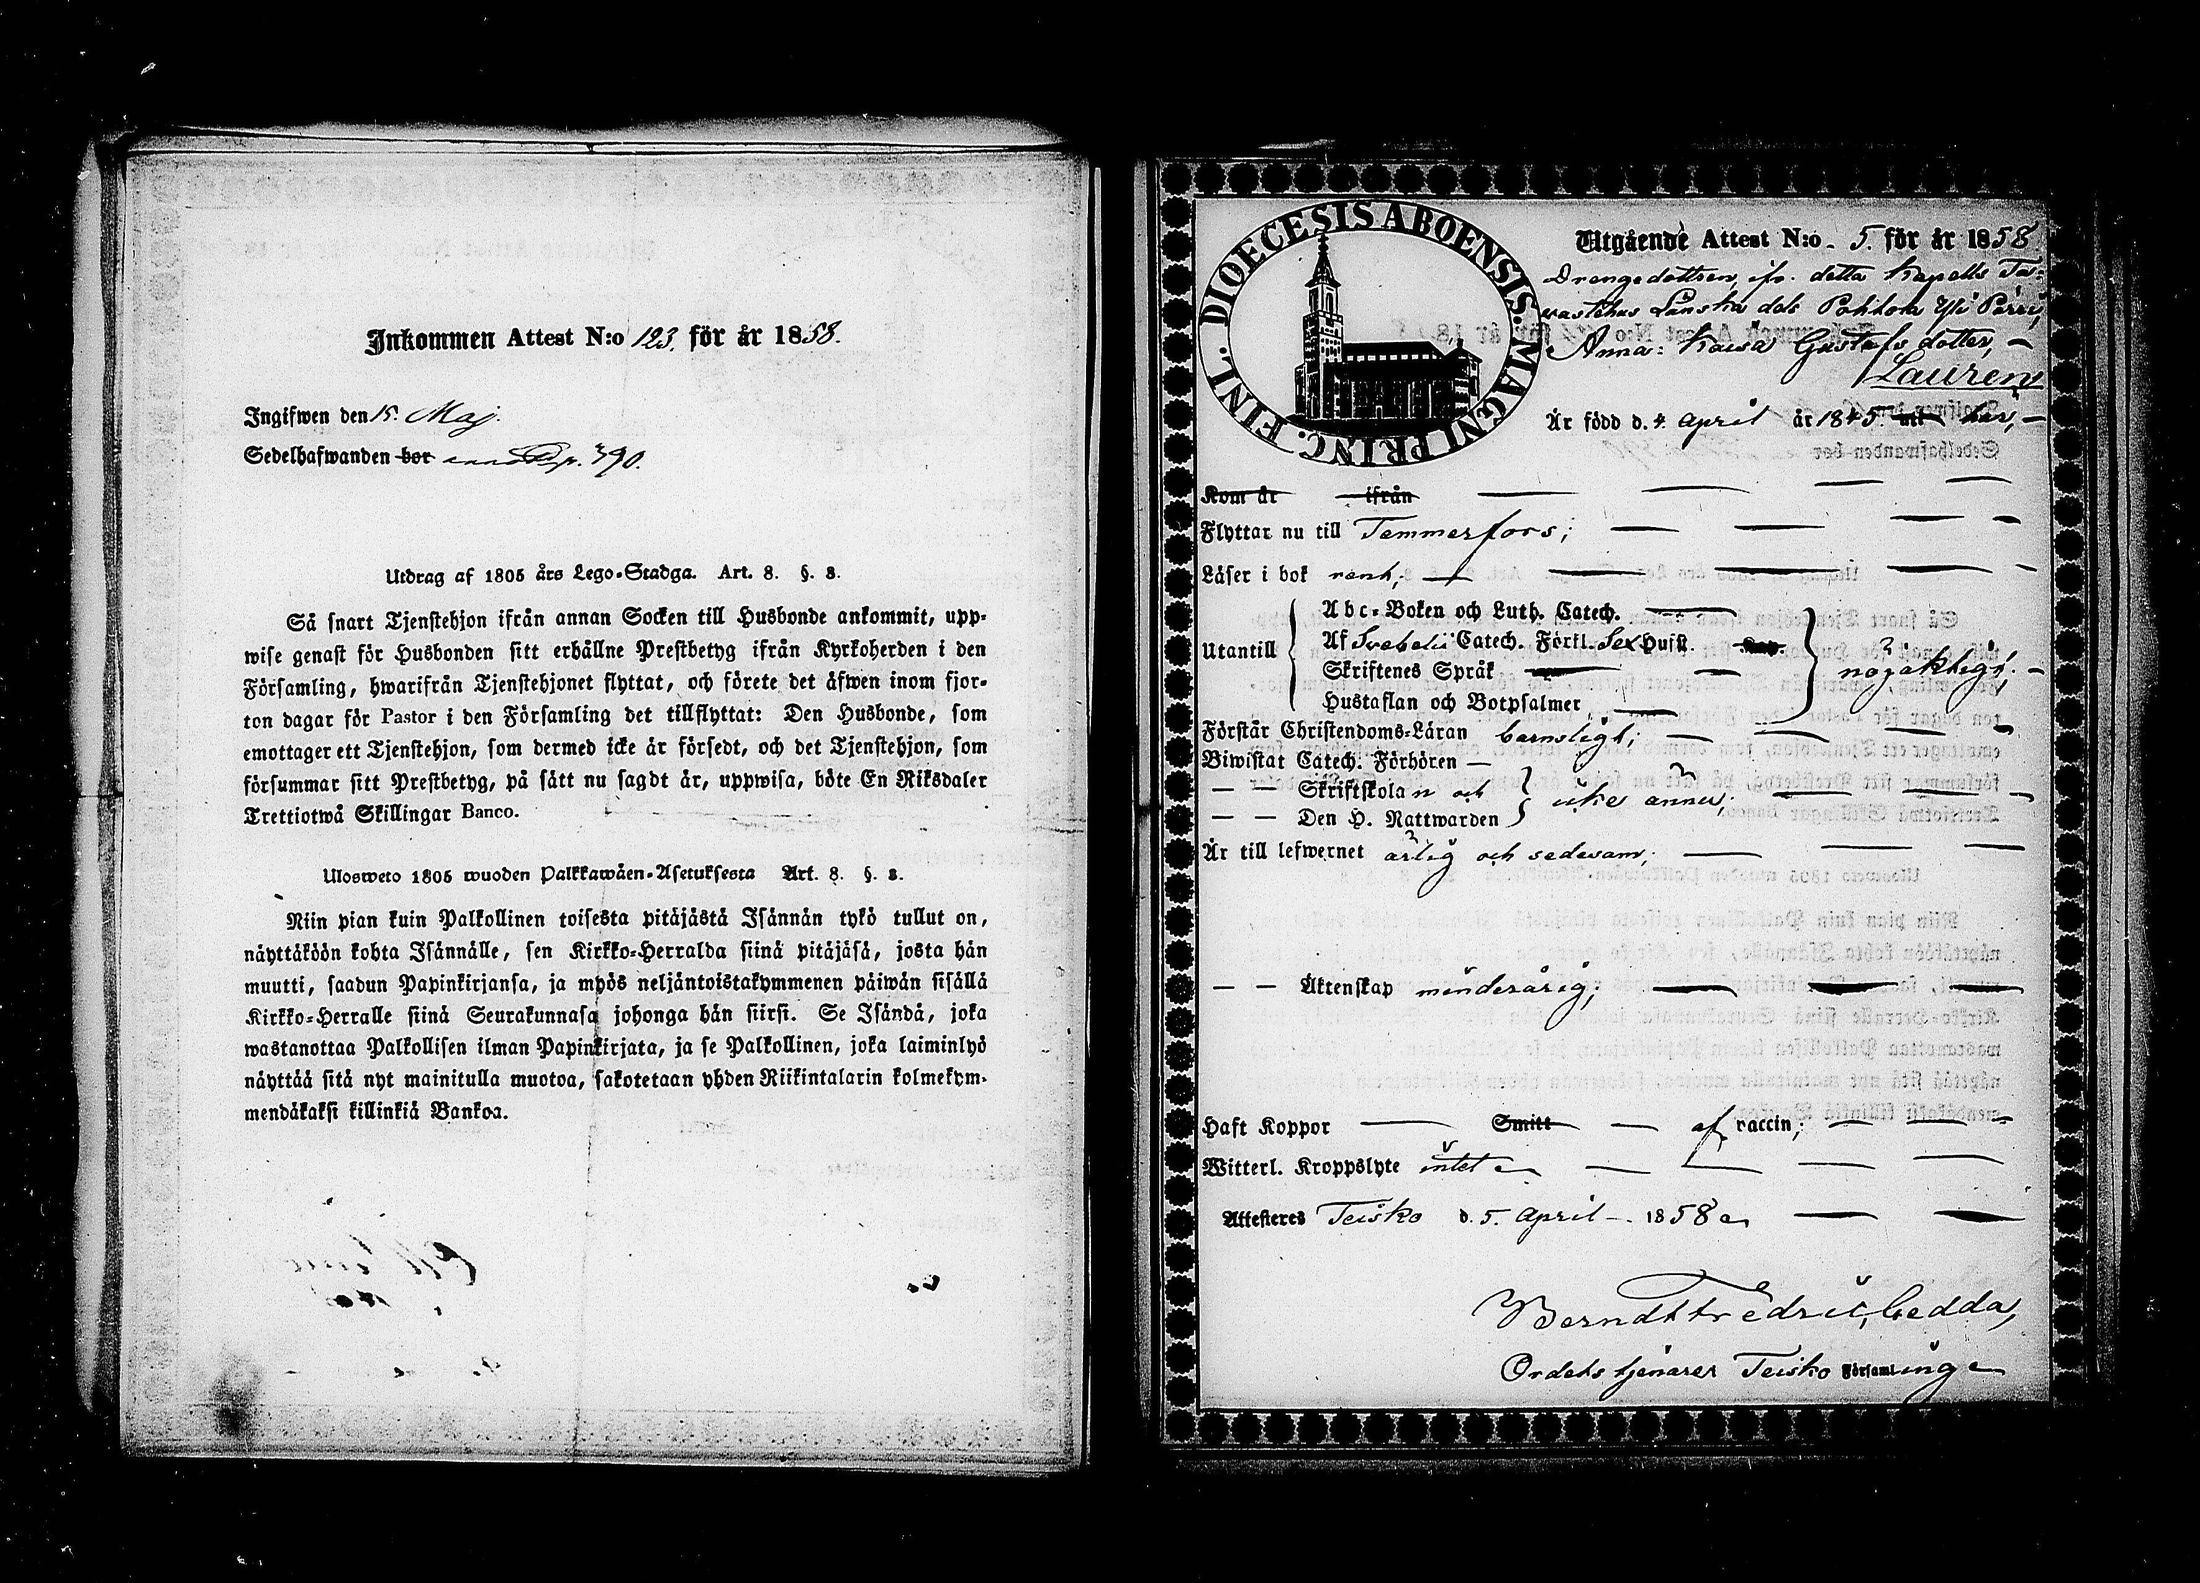 Inkommen Attest N:o 123. för år 1858.
Ingifwen den 15. Maj.
Sedelhafwanden bor 790.
Utdrag af 1805 års Lego-Stadga. Art. 8. §. 8.
Så snart Tjenstehjon ifrån annan Socken till Husbonde ankommit, upp-
wise genast för Husbonden sitt erhållne Prestbetyg ifrån Kyrkoherden i den
Församling, hwarifrån Tjenstehjonet flyttat, och förete det äfwen inom fjor-
ton dagar för Pastor i den Församling det tillflyttat: Den Husbonde, som
emottager ett Tjenstehjon, som dermed icke är försedt, och det Tjenstehjon, som
försummar sitt Prestbetyg, på sätt nu sagdt är, uppwisa, böte En Riksdaler
Trettiotwå Skillingar Banco.
Ulosweto 1805 wuoden Palkkawäen-Asetuksesta Art. 8. §. 8.
Niin pian kuin Palkollinen toisesta pitäjästä Isännän tykö tullut on,
näyttäköön kohta Isännälle, sen Kirkko-Herralda siinä pitäjäsä, josta hän
muutti, saadun Papinkirjansa, ja myös neljäntoistakymmenen päiwän sisällä
Kirkko-Herralle siinä Seurakunnasa johonga hän siirsi. Se Isändä, joka
wastanottaa Palkollisen ilman Papinkirjata, ja se Palkollinen, joka laiminlyö
näyttää sitä nyt mainitulla muotoa, sakotetaan yhden Riikintalarin kolmekym-
mendäkaksi killinkiä Bankoa.
DIOECESIS ABOENSIS. MAGNI PRINC. FINL.
Utgående Attest N:o 5. för år 1858
Drengedottren, ifr. detta Kapells Ta-
vastehus Länska del: Pohtola Yli Pärri,
Anna: Kaisa Gustafs dotter, —
Lauren
Är född d. 4. April år 1845. här, —
Kom år ifrån
Flyttar nu till Temmerfors;
Läser i bok rent,
Utantill
Abc-Boken och Luth. Catech.
Af Svebelii Catech. Förkl. Sex Hufst.
Skriftenes Språk
Hustaflan och Botpsalmer
nöjaktigt;
Förstår Christendoms-Läran barnsligt;
Biwistat Catech. Förhören —
— — Skriftskolan och
— — Den H. Nattwarden
icke ännu;
Är till lefwernet ärlig och sedesam;
— — Äktenskap minderårig;
Haft Koppor — Smitt — af vaccin;
Witterl. Kroppslyte intet
Attesteres Teisko d. 5. April 1858
Berndt Fredric Cedda,
Ordets tjenarer Teisko Församling